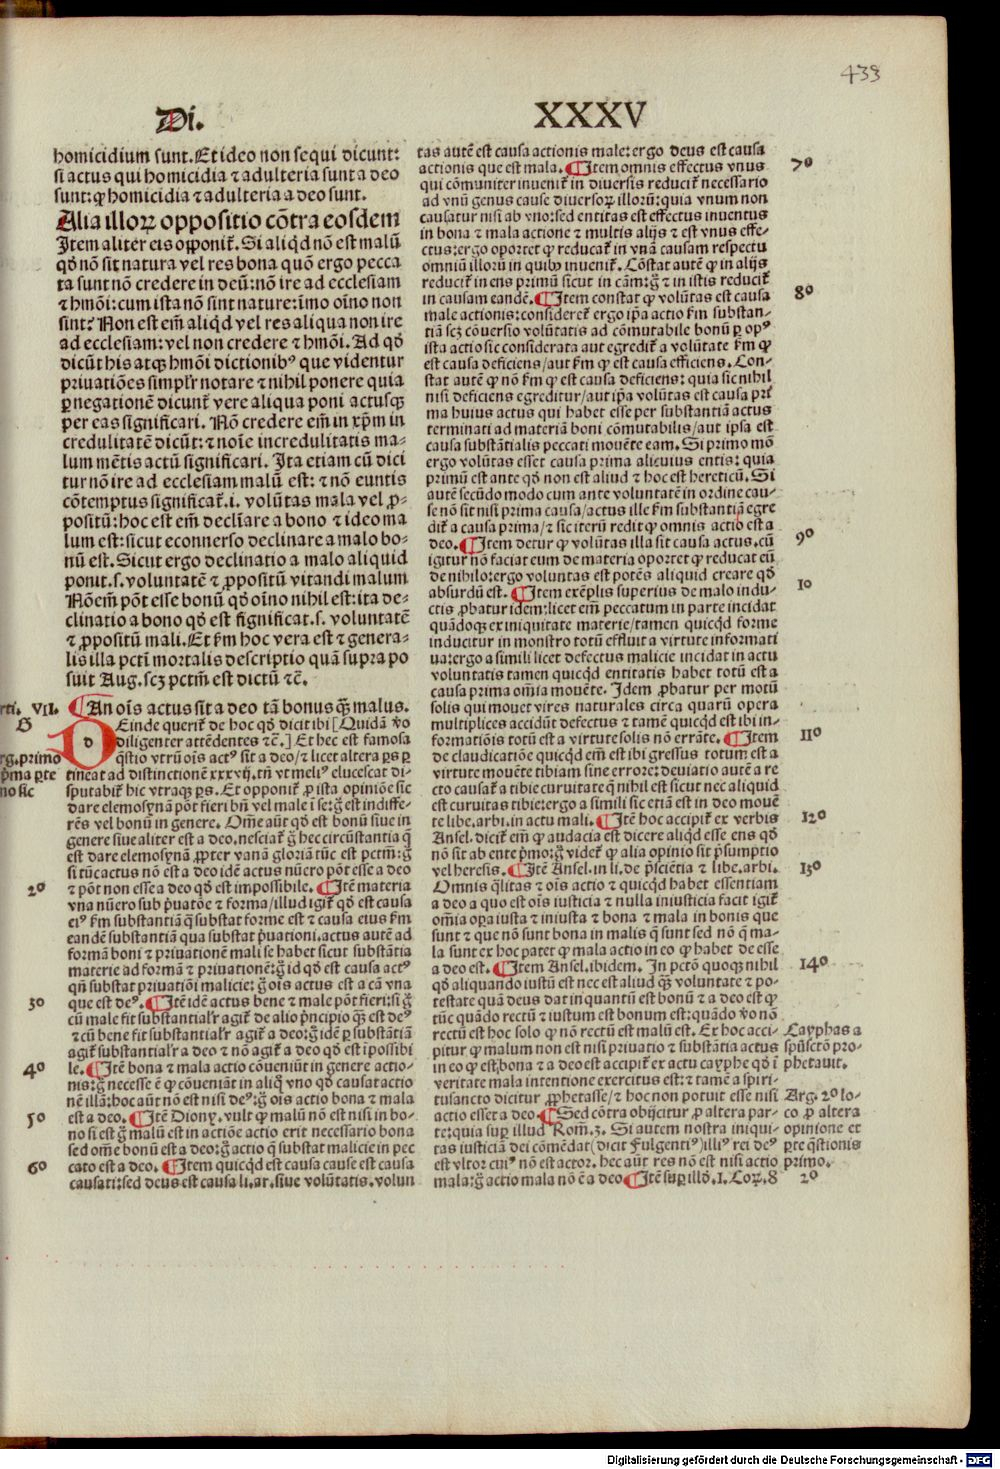 433
Di.
XXXV
homicidium sunt. Et ideo non sequi dicunt:
si actus qui homicidia ⁊ adulteria sunt a deo
sunt: ꝙ homicidia ⁊ adulteria a deo sunt.
Alia illoꝝ oppositio cōtra eosdem
Item aliter eis opponit᷑. Si aliqd nō est malū
qd̓ nō sit natura vel res bona quō ergo pecca
ta sunt nō credere in deū: nō ire ad ecclesiam
⁊ hmōi: cum ista nō sint nature: īmo oīno non
sint? Non est em̄ aliqd vel res aliqua non ire
ad ecclesiam: vel non credere ⁊ hmōi. Ad qd̓
dicūt his atqꝫ hmōi dictionibꝰ que videntur
priuatiōes simplr̄ notare ⁊ nihil ponere quia
ꝑ negationē dicunt᷑ vere aliqua poni actusqꝫ
per eas significari. Nō credere em̄ in xp̄m in
credulitatē dicūt: ⁊ noīe incredulitatis ma-
lum mētis actū significari. Ita etiam cū dici
tur nō ire ad ecclesiam malū est: ⁊ nō euntis
cōtemptus significat᷑ .i. volūtas mala vel ꝓ-
positū: hoc est em̄ declīare a bono ⁊ ideo ma
lum est: sicut econuerso declinare a malo bo-
nū est. Sicut ergo declinatio a malo aliquid
ponit .s. voluntatē ⁊ ꝓpositū vitandi malum
Nō em̄ pōt esse bonū qd̓ oīno nihil est: ita de-
clinatio a bono qd̓ est significat .s. voluntatē
⁊ ꝓpositū mali. Et ẜm hoc vera est ⁊ genera-
lis illa pctī mortalis descriptio quā supra po
suit Aug. scꝫ pctm̄ est dictū ⁊c̄.
rti. VII.
¶ An oīs actus sit a deo tā bonus q̄ꝫ malus.
Deinde querit᷑ de hoc qd̓ dicit ibi [Quidā v̓o
diligenter attēdentes ⁊c̄.] Et hec est famosa
rg. primo
q̄stio vtrū oīs actꝰ sit a deo/ ⁊ licet altera ꝑs ꝑ
pma ꝑte
tineat ad distinctionē xxxvij. tn̄ vt meliꝰ elucescat di-
no sic
sputabit᷑ hic vtraqꝫ ꝑs. Et opponit᷑ ꝓ ista opiniōe sic
dare elemosynā pōt fieri bn̄ vel male ī se: g̊ est indiffe-
rēs vel bonū in genere. Om̄e aūt qd̓ est bonū siue in
genere siue aliter est a deo. nesciat᷑ g̊ hec circūstantia q̄
est dare elemosynā ꝓpter vanā gloriā tūc est pctm̄: g̊
si tūc actus nō est a deo idē actus nūero pōt esse a deo
20
⁊ pōt non esse a deo qd̓ est impossibile. ¶ Itē materia
vna nūero sub p̄uatōe ⁊ forma/ illud igit᷑ qd̓ est causa
eiꝰ ẜm substantiā q̄ substat forme est ⁊ causa eius ẜm
eandē substantiā qua substat p̄uationi. actus autē ad
formā boni ⁊ priuationē mali se habet sicut substātia
materie ad formā ⁊ priuationē: g̊ id qd̓ est causa actꝰ
qn̄ substat priuatiōi malicie: g̊ oīs actus est a cā vna
30
que est deꝰ. ¶ Itē idē actus bene ⁊ male pōt fieri: si g̊
cū male fit substantialr̄ agit᷑ de alio p̄ncipio q̄ꝫ est deꝰ
⁊ cū bene fit substantialr̄ agit᷑ a deo: g̊ idē ꝑ substātiā
agit᷑ substantialr̄ a deo ⁊ nō agit᷑ a deo qd̓ est īpossibi
40
le. ¶ Itē bona ⁊ mala actio cōueniūt in genere actio-
nis: g̊ necesse ē ꝙ cōueniāt in aliq̄ vno qd̓ causat actio
nē illā: hoc aūt nō est nisi deꝰ: g̊ oīs actio bona ⁊ mala
50
est a deo. ¶ Itē Diony. vult ꝙ malū nō est nisi in bo-
no si est g̊ malū est in actiōe actio erit necessario bona
sed om̄e bonū est a deo: g̊ actio q̄ substat malicie in pec
60
cato est a deo. ¶ Item quicqd̓ est causa cause est causa
causati: sed deus est causa li. ar. siue volūtatis. volun
tas autē est causa actionis male: ergo deus est causa
actionis que est mala. ¶ Item omnis effectus vnus
70
qui cōmuniter inuenit᷑ in diuersis reducit᷑ necessario
ad vnū genus cause diuersoꝝ illorū: quia vnum non
causatur nisi ab vno: sed entitas est effectus inuentus
in bona ⁊ mala actione ⁊ multis alijs ⁊ est vnus effe-
ctus: ergo oportet ꝙ reducat᷑ in vnā causam respectu
omniū illorū in quibꝰ inuenit᷑. Cōstat autē ꝙ in alijs
reducit᷑ in ens primū sicut in cām: g̊ ⁊ in istis reducit᷑
in causam eandē. ¶ Item constat ꝙ volūtas est causa
80
male actionis: consideret᷑ ergo ip̄a actio ẜm substan-
tiā scꝫ cōuersio volūtatis ad cōmutabile bonū ꝑ opꝰ
ista actio sic considerata aut egredit᷑ a volūtate ẜm ꝙ
est causa deficiens/ aut ẜm ꝙ est causa efficiens. Con-
stat autē ꝙ nō ẜm ꝙ est causa deficiens: quia sic nihil
nisi deficiens egreditur/ aut ip̄a volūtas est causa pri
ma huius actus qui habet esse per substantiā actus
terminati ad materiā boni cōmutabilis/ aut ipsa est
causa substātialis peccati mouēte eam. Si primo mō
ergo volūtas esset causa prima alicuius entis: quia
primū est ante qd̓ non est aliud ⁊ hoc est hereticū. Si
autē secūdo modo cum ante voluntatē in ordine cau-
se nō sit nisi prima causa/ actus ille ẜm substantiā egre
dit᷑ a causa prima/ ⁊ sic iterū redit ꝙ omnis actio est a
deo. ¶ Item detur ꝙ voluntas illa sit causa actus. cū
90
igitur nō faciat eum de materia oportet ꝙ reducat eū
de nihilo: ergo voluntas est potēs aliquid creare qd̓
absurdū est. ¶ Item exēplis superius de malo indu-
10
ctis ꝓbatur idem: licet em̄ peccatum in parte incidat
quādoqꝫ ex iniquitate materie/ tamen quicqd̓ forme
inducitur in monstro totū effluit a virtute informati
ua: ergo a simili licet defectus malicie incidat in actu
voluntatis tamen quicqd̓ entitatis habet totū est a
causa prima om̄ia mouēte. Idem ꝓbatur per motū
solis qui mouet vires naturales circa quarū opera
multiplices accidūt defectus ⁊ tamē quicqd̓ est ibi in-
formatiōis totū est a virtute solis nō errāte. ¶ Item
110
de claudicatiōe quicqd̓ em̄ est ibi gressus totum est a
virtute mouēte tibiam sine errore: deuiatio autē a re
cto causat᷑ a tibie curuitate q̄ nihil est sicut nec aliquid
est curuitas tibie: ergo a simili sic etiā est in deo mouē
te libe. arbi. in actu mali. ¶ Itē hoc accipit᷑ ex verbis
120
Ansel. dicit᷑ em̄ ꝙ audacia est dicere aliqd̓ esse ens qd̓
nō sit ab ente p̄mo: g̊ videt᷑ ꝙ alia opinio sit p̄sumptio
vel heresis. ¶ Itē Ansel. in li. de p̄sciētia ⁊ libe. arbi.
130
Omnis q̄litas ⁊ oīs actio ⁊ quicqd̓ habet essentiam
a deo a quo est oīs iusticia ⁊ nulla iniusticia facit igit᷑
om̄ia oꝑa iusta ⁊ iniusta ⁊ bona ⁊ mala in bonis que
sunt ⁊ que nō sunt bona in malis q̄ sunt sed nō q̄ ma-
la sunt ex hoc patet ꝙ mala actio in eo ꝙ habet de esse
a deo est. ¶ Item Ansel. ibidem. In pctō quoqꝫ nihil
140
qd̓ aliquando iustū est nec est aliud q̄ꝫ voluntate ⁊ po-
testate quā deus dat inquantū est bonū ⁊ a deo est ꝙ
tūc quādo rectū ⁊ iustum est bonum est: quādo v̓o nō
rectū est hoc solo ꝙ nō rectū est malū est. Ex hoc acci-
Cayphas a
pitur ꝙ malum non est nisi priuatio ⁊ substātia actus
spūsctō pro-
in eo ꝙ est/ bona ⁊ a deo est accipit᷑ ex actu cayphe qd̓ ī
phetauit.
veritate mala intentione exercitus est: ⁊ tamē a spiri-
tusancto dicitur ꝓphetasse/ ⁊ hoc non potuit esse nisi
Arg. 2o lo-
actio esset a deo. ¶ Sed cōtra obijcitur ꝓ altera par-
co ꝓ altera
te: quia suꝑ illud Rom̄. 3. Si autem nostra iniqui-
opinione et
tas iusticiā dei cōmēdat (dicit Fulgentiꝰ) illiꝰ rei deꝰ
ꝑte q̄stionis
est vltor cuiꝰ nō est actor. hec aūt res nō est nisi actio
primo.
mala: g̊ actio mala nō ē a deo ¶ Itē suꝑ illd̓ .1. Coꝝ. 8
20
Digitalisierung gefördert durch die Deutsche Forschungsgemeinschaft - DFG